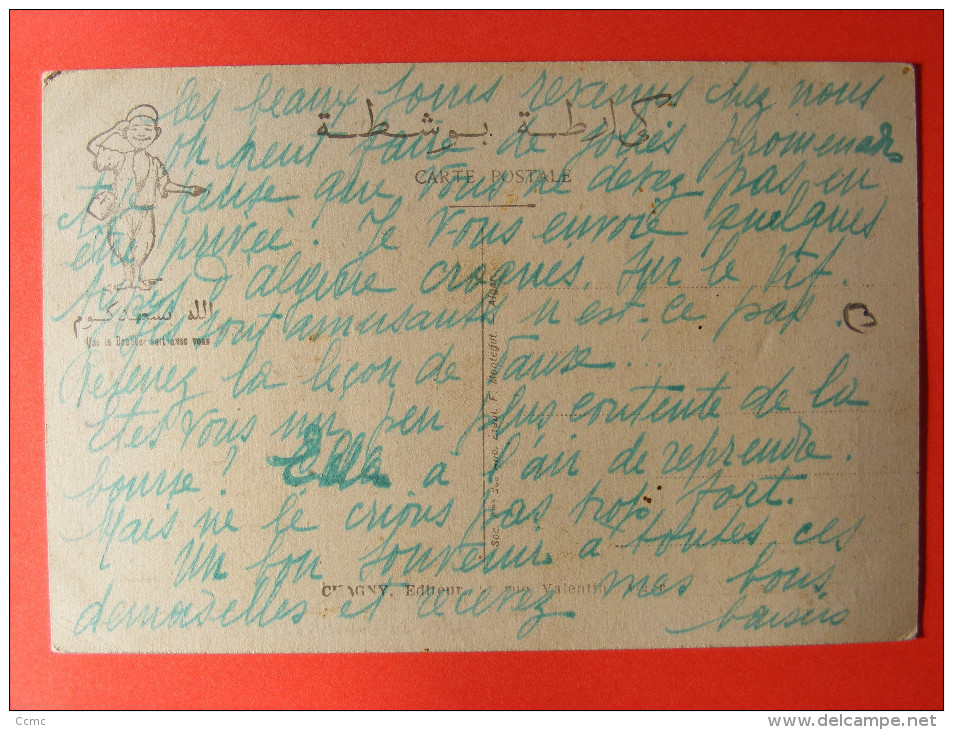 les beaux jours revenus chez nous
كارطة بوسطة
on peut faire de jolies promenades
CARTE POSTALE
et je pense que vous ne devez pas en
être privée. Je vous envoie quelques
types d'algérie croqués sur le vif.
الله يسعدكوم
Ils sont amusants n'est-ce pas.
Que le Bonheur soit avec vous
Prenez la leçon de danse...
Etes vous un peu plus contente de la
bourse? Elle a l'air de reprendre.
Mais ne le crions pas trop fort.
Un bon souvenir à toutes ces
CHAGNY, Editeur rue Valentin Alger
demoiselles et recevez mes bons
baisers
Ccmc
www.delcampe.net